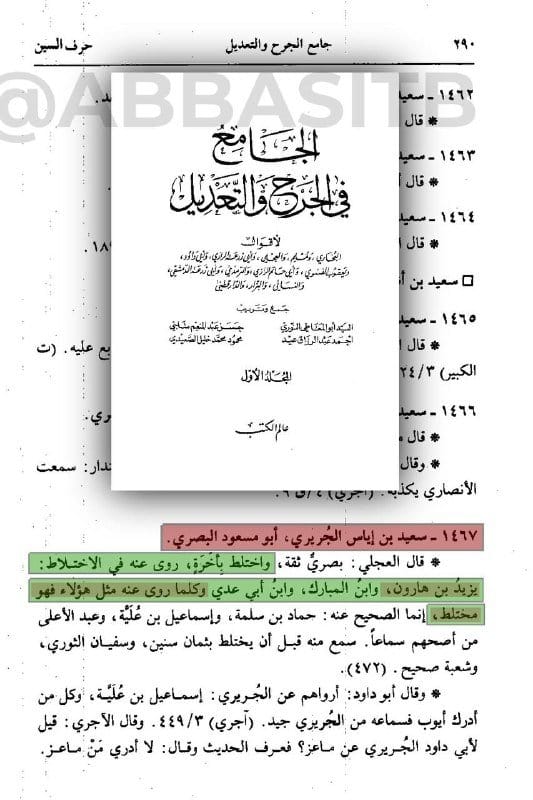 ٢٩٠
جامع الجرح والتعديل
حرف السين
@ABBASITB
١٤٦٢ ـ سعيد
* قال
١٤٦٣ ـ سعيد
* قال أ
١٤٦٤ ـ سعيد
* قال
سعيد بن أ
١٤٦٥ ـ سعيد
* قال
بع عليه. (ت
الكبير) ٣/
١٤٦٦ ـ سعيد
* قال
* وقال
ندار: سمعت
الأنصاري يكذبه. (آجري)
الجامع
في الجرح والتعديل
لأقوال
البخاري، ومسلم، والعجلي، وأبي زرعة الرازي، وأبي داود،
ويعقوب الفسوي، وأبي حاتم الرازي، والترمذي، وأبي زرعة الدمشقي،
والنسائي، والبزار، والدارقطني
جمع وترتيب
السيد أبو المعاطي النوري حسن عبد المنعم شلبي
أحمد عبد الرزاق عيد محمود محمد خليل الصعيدي
المجلد الأول
عالم الكتب
١٤٦٧ ـ سعيد بن إياس الجُريري، أبو مسعود البصري.
* قال العجلي: بصريٌّ ثقة، واختلط بأَخَرَةٍ، روى عنه في الاختلاط:
يزيدُ بن هارون، وابنُ المبارك، وابنُ أبي عدي وكلما روى عنه مثل هؤلاء فهو
مختلط، إنما الصحيح عنه: حماد بن سلمة، وإسماعيل بن عُلَيَّة، وعبد الأعلى
من أصحهم سماعاً. سمع منه قبل أن يختلط بثمان سنين، وسفيان الثوري،
وشعبة صحيح. (٤٧٢).
* وقال أبو داود: أرواهم عن الجُريري: إسماعيل بن عُلَيَّة، وكل من
أدرك أيوب فسماعه من الجُريري جيد. (آجري) ٣/٤٤٩. وقال الآجري: قيل
لأبي داود الجُريري عن ماعز؟ فعرف الحديث وقال: لا أدري مَنْ ماعز.